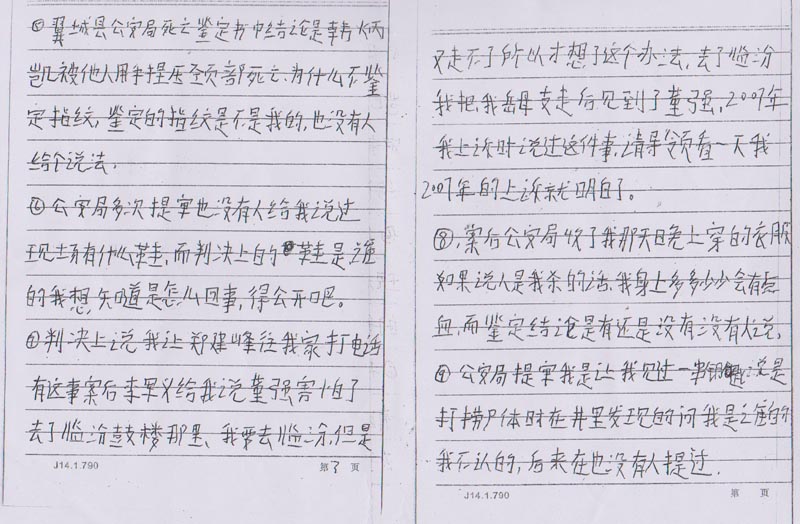 ⑤翼城县公安局死亡鉴定书中结论是韩炳
凯被他人用手捏压颈部死亡.为什么不鉴
定指纹,鉴定的指纹是不是我的,也没有人
给个说法.
⑥公安局多次提审也没有人给我说过
现场有什么鞋,而判决上的鞋是谁
的我想知道是怎么回事,得公开吧。
⑦判决上说我让郑建峰往我家打电话
有这事案后李军义给我说董强害怕了
去了临汾鼓楼那里、我要去临汾,但是
J14.1.790
第3页
又走不了所以才想了这个办法,去了临汾
我把我岳母支走后见到了董强,2007年
我上诉时说过这件事,请领导看一天我
2007年的上诉就明白了。
⑧,案后公安局收了我那天晚上穿的衣服
如果说人是我杀的话.我身上多多少少会有点
血,而鉴定结论是有还是没有没有人说,
⑨公安局提审我是让我见过一串钥匙说是
打捞尸体时在井里发现的问我是谁的
我不认的,后来在也没有人提过.
J14.1.790
第 页